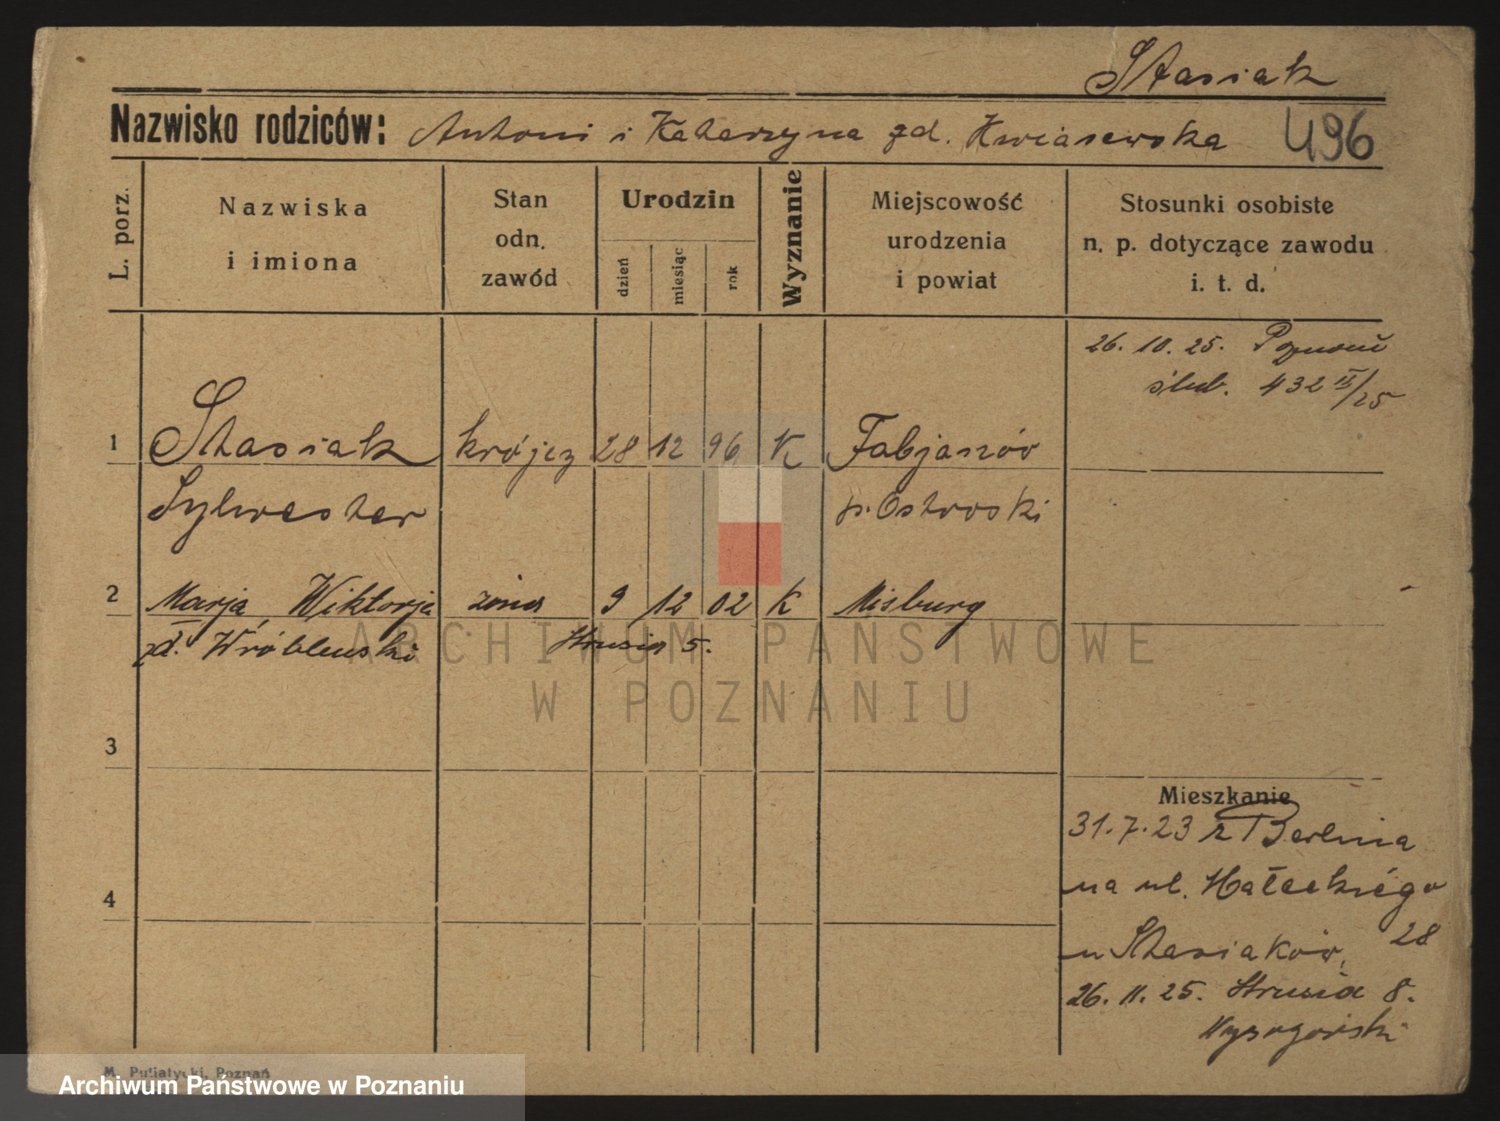 Stasiak
Nazwisko rodziców: Antoni i Katarzyna zd. Kwiasewska 496
L. porz.
Nazwiska
i imiona
Stan
odn.
zawód
Urodzin
dzień miesiąc rok
Wyznanie
Miejscowość
urodzenia
i powiat
Stosunki osobiste
n. p. dotyczące zawodu
i. t. d.
26. 10. 25. Poznań
ślub. 432 II/25
1 Stasiak krójcz 28 12 96 K Fabjanów
Sylwester p. Ostroski
2 Marja, Wiktorja żona 9 12 02 K Misburg
zd. Wróblewski Strusia 5.
3
Mieszkanie
31.7.23 z Berlina
4
na ul. Małeckiégo
28
u Stasiaków,
26. 11. 25. Strusia 8.
Wysogórski
M. Putiatycki, Poznań
ARCHIWUM PAŃSTWOWE
W POZNANIU
Archiwum Państwowe w Poznaniu